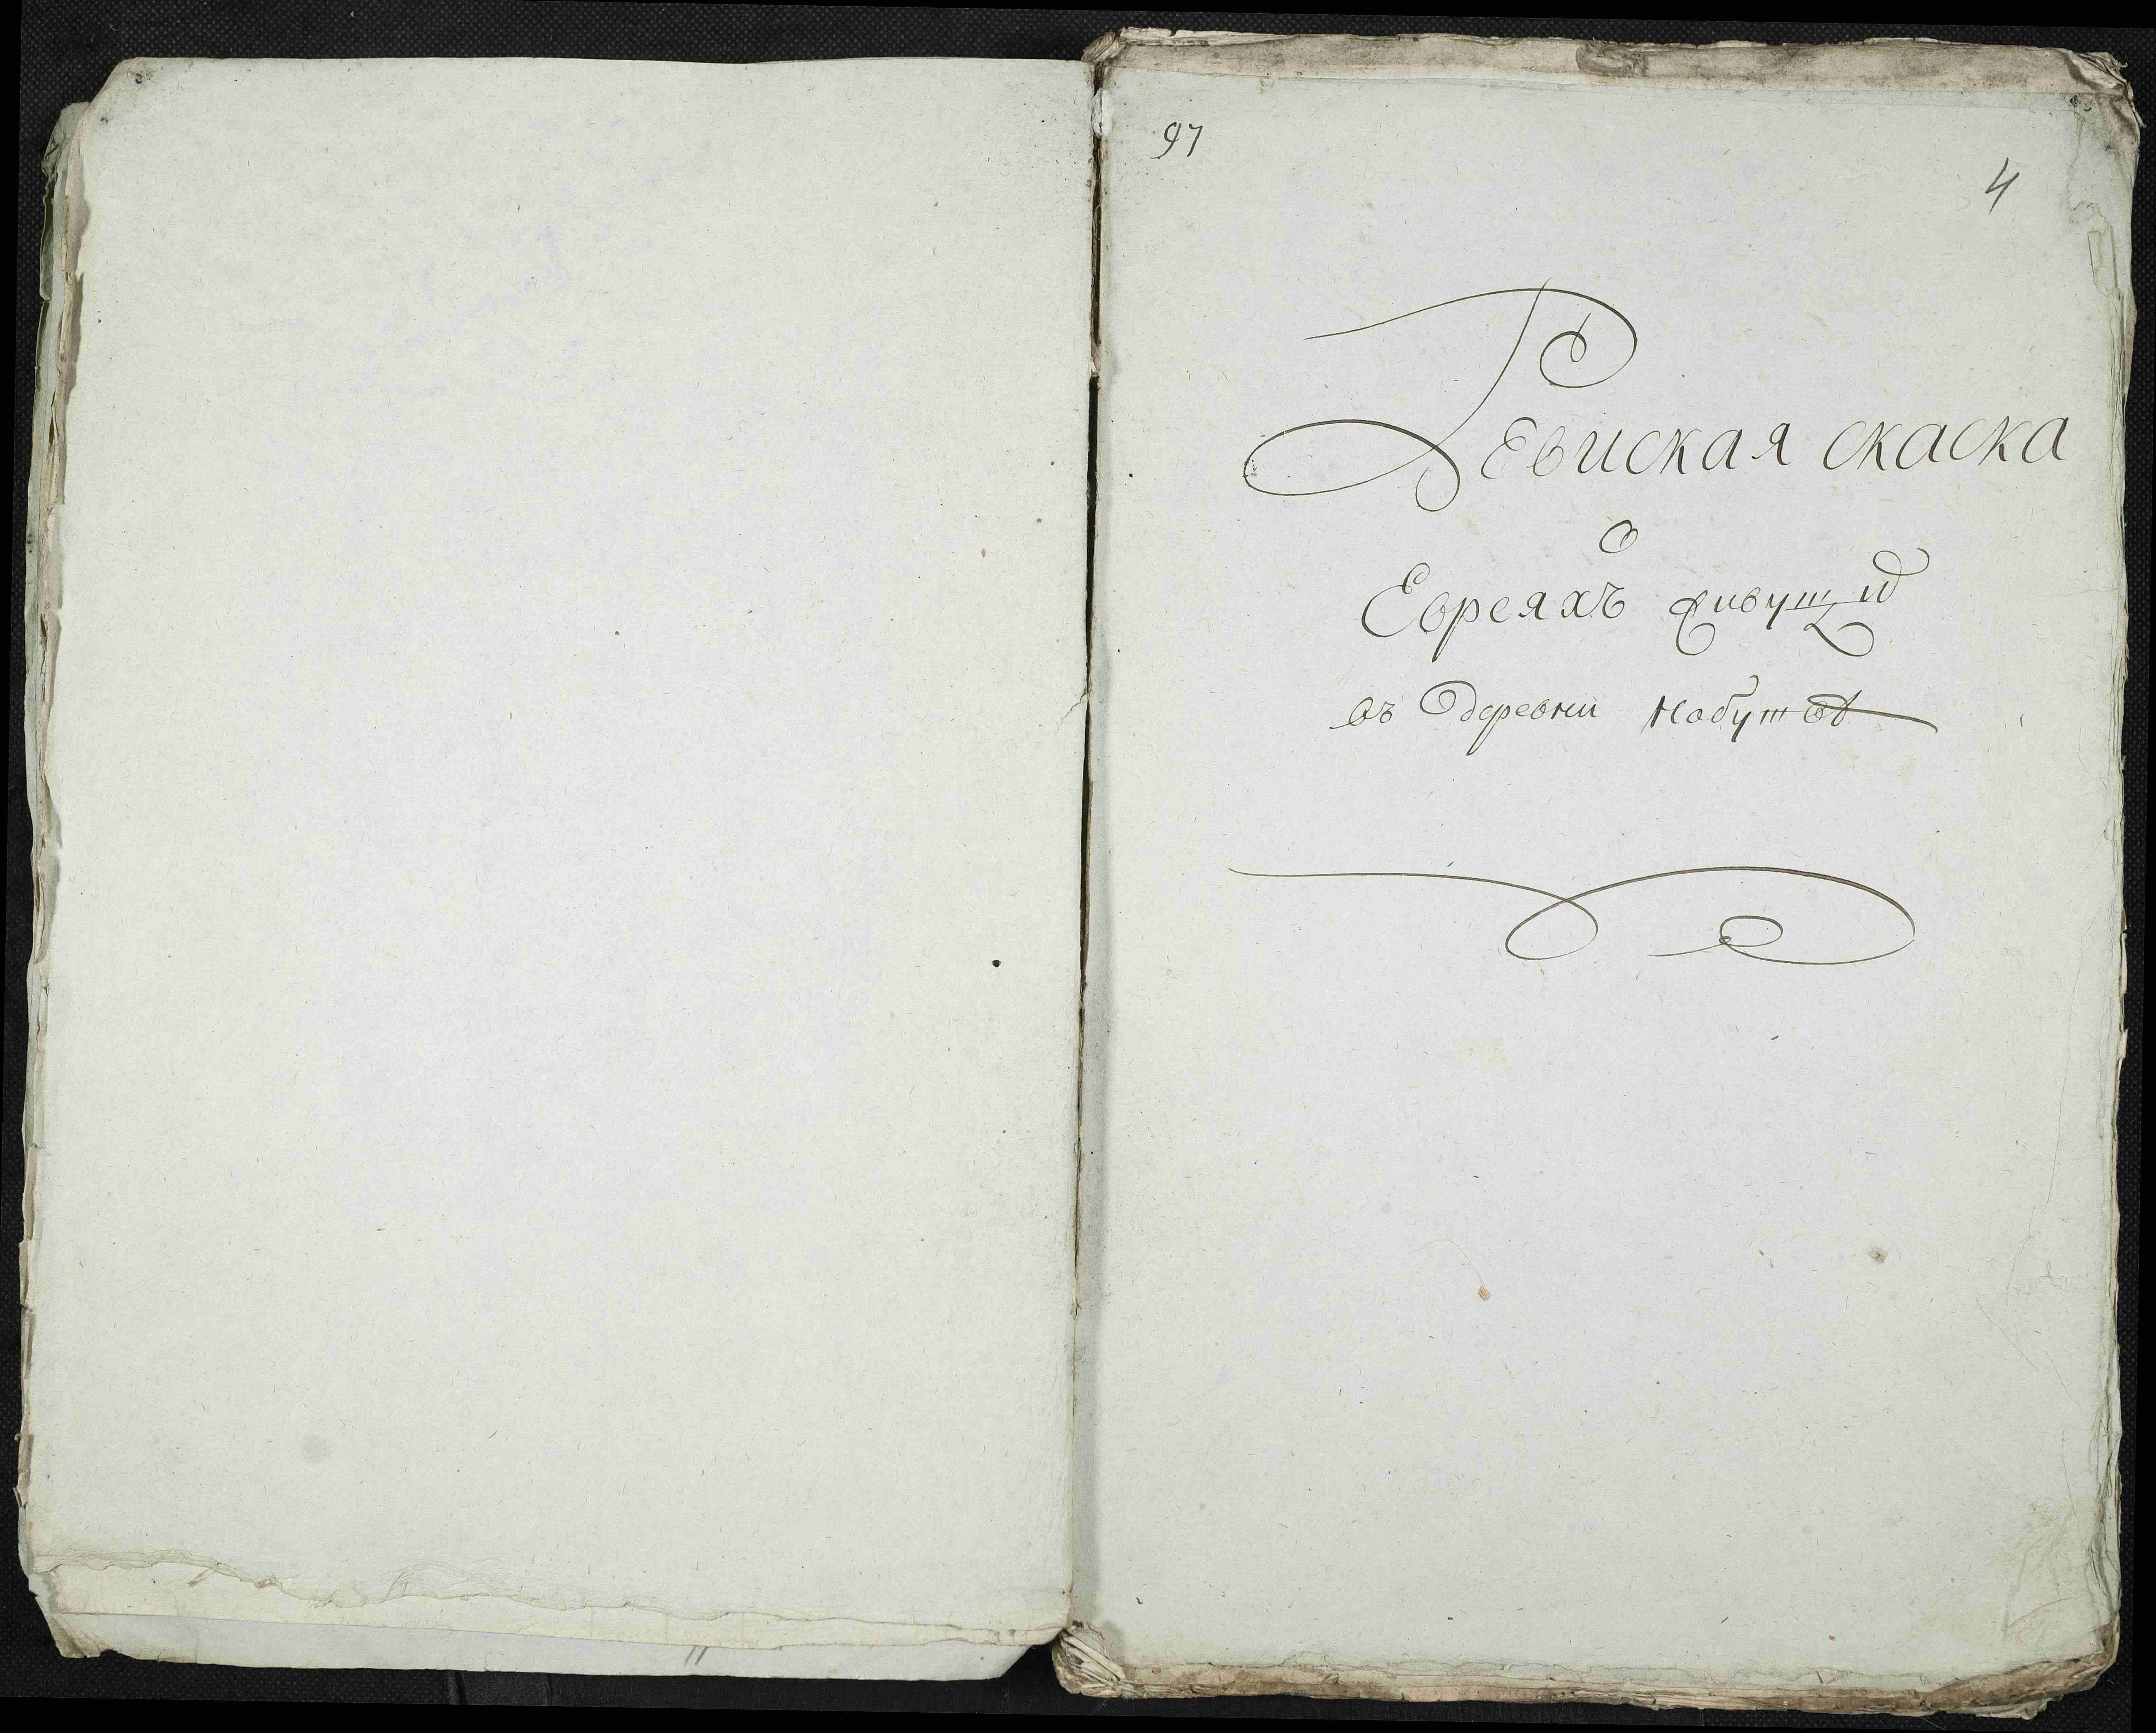 97
4
Ревиская скаска
О
Евреяхъ живущих
въ деревни Набутовѣ